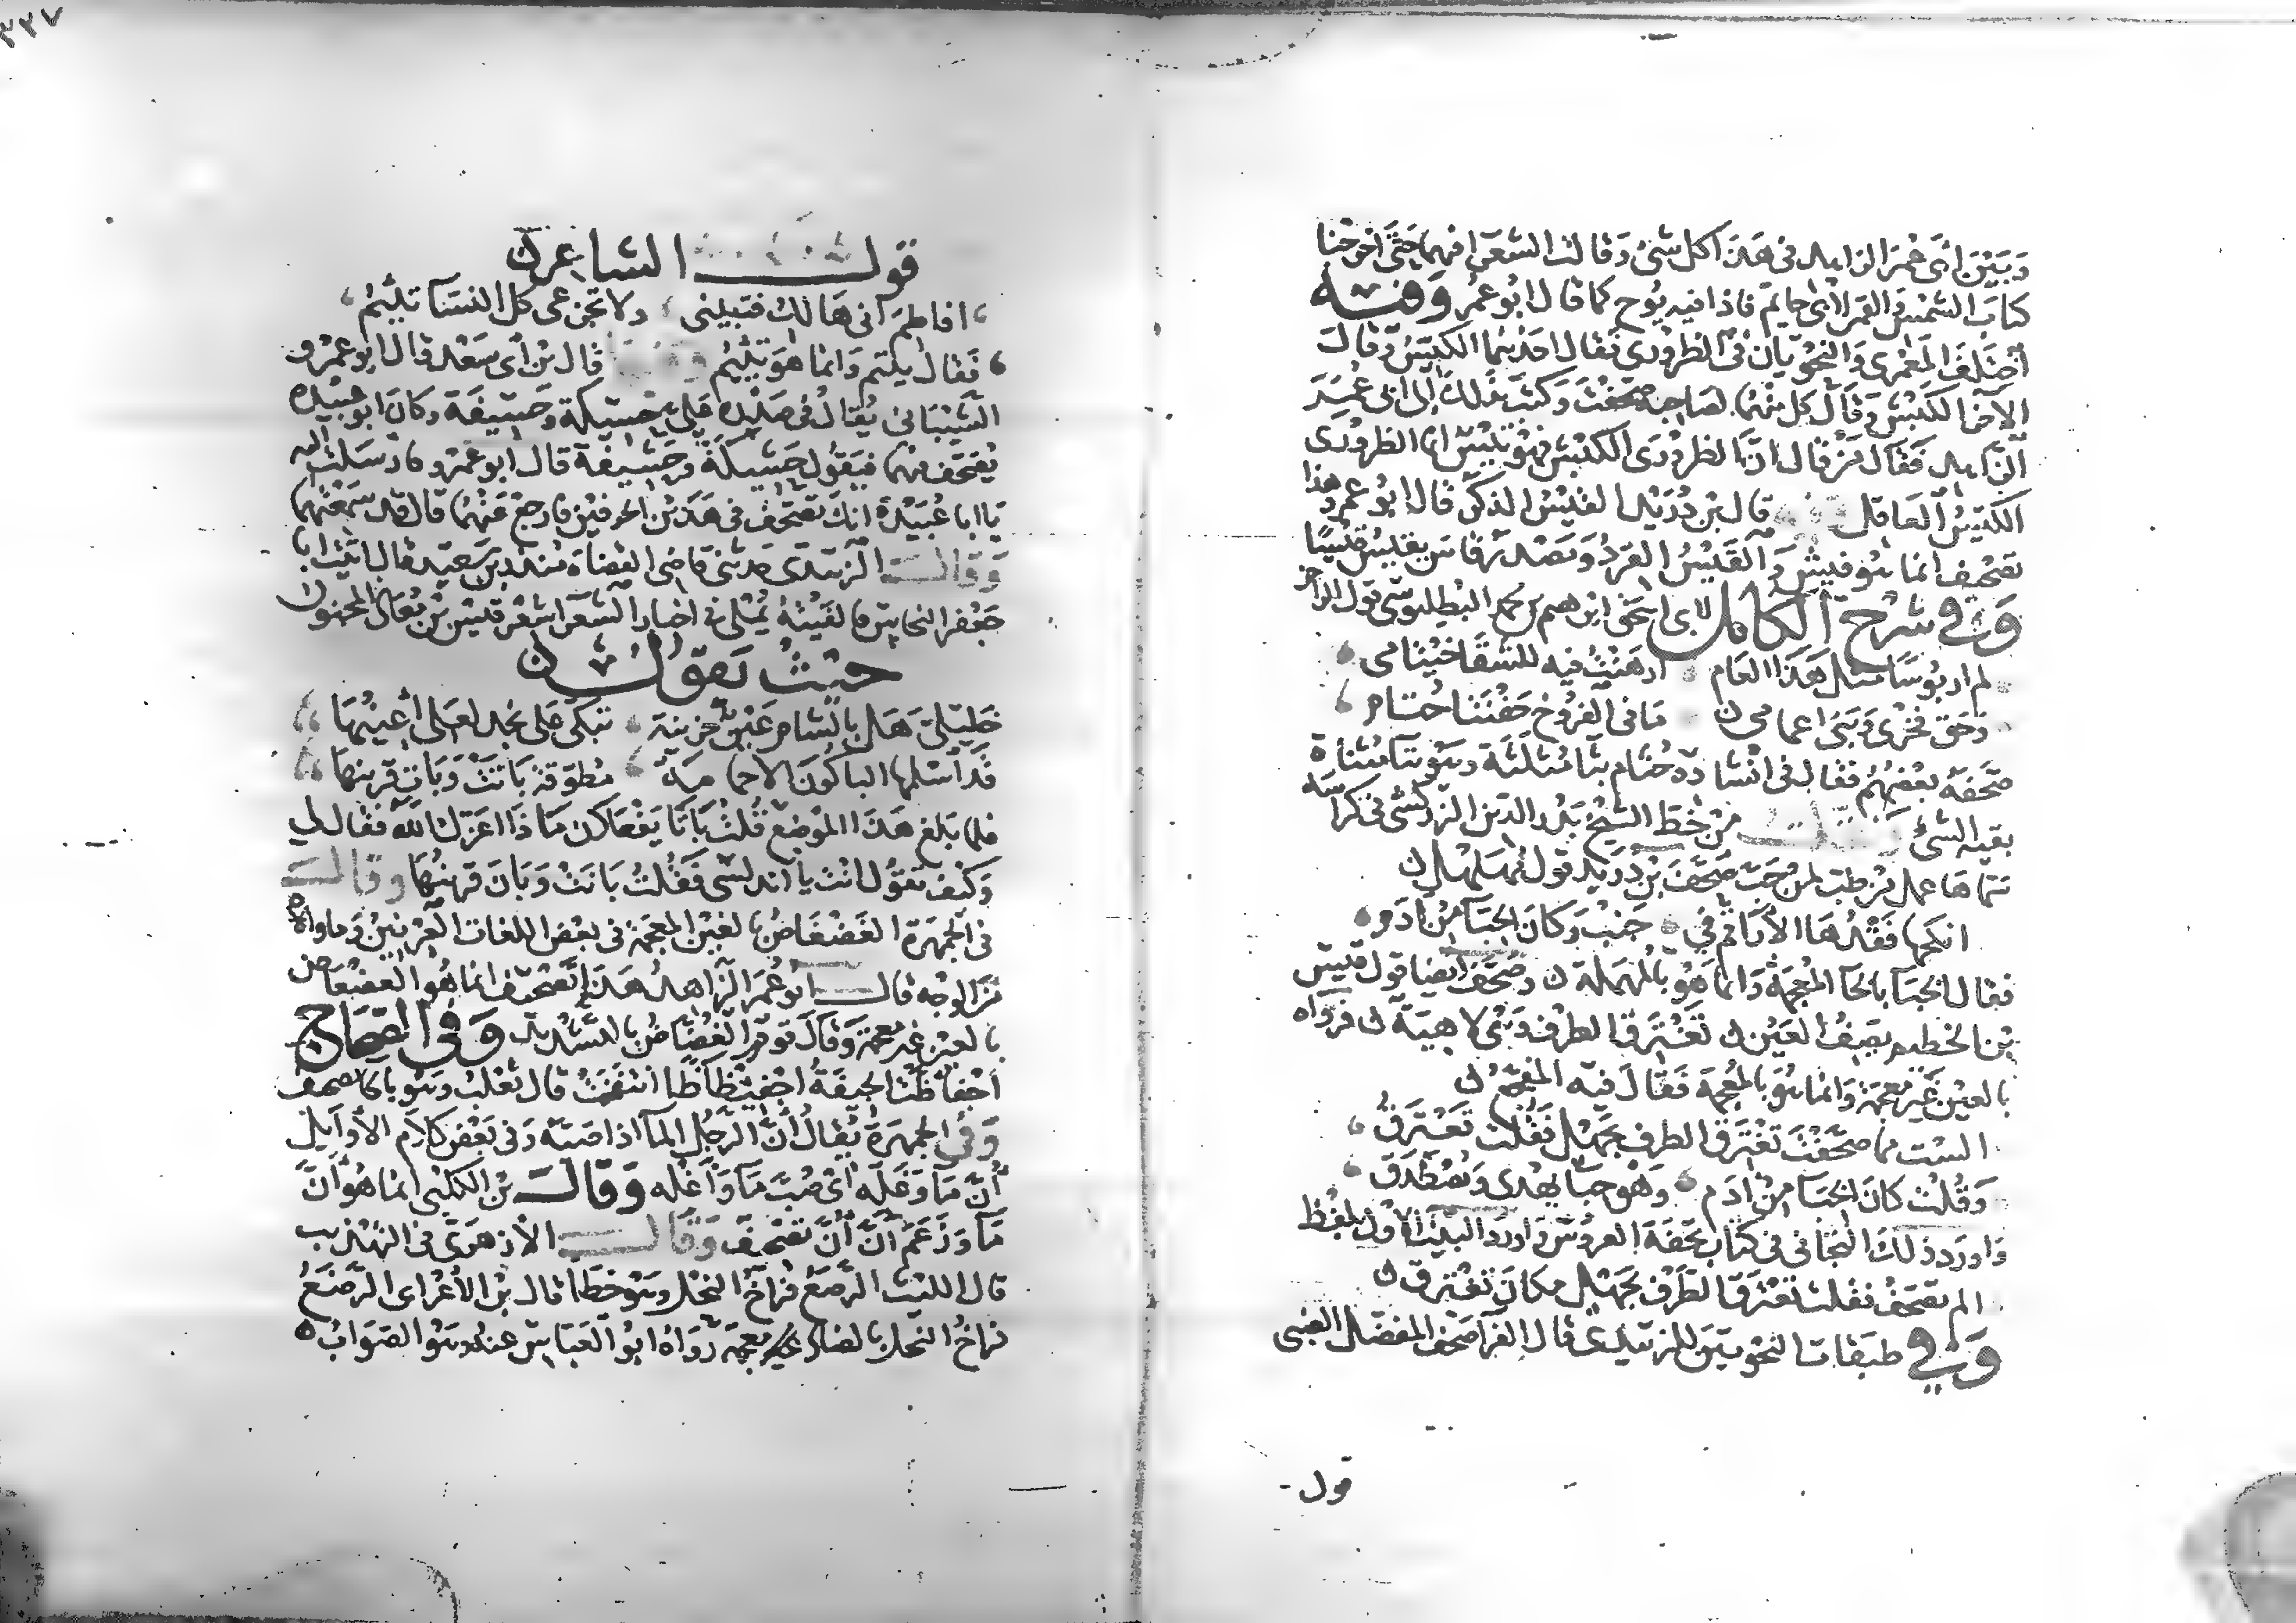 وَبَيْنَ ابى عُمَر الزاهد فى هَذَا كل شىء وَقالت الشعرا فيهما حَتى اخرجنا
كتاب الشمس والقمر لابى حاتم فاذا فيه يُوح كما قال ابُو عمُر وَفيه
اختلف المَعْمرى وَالنحويان فى الظرورى فقال احدهما الكيّس وقال
الآخر الكبش وَقال كل منهما لصاحبه صحفت وَكتب بذلك الى ابى عُمَر
الزاهد فقال مَنْ قال انّ الظرورى الكبش فهو تيس انما الظرورى
الكيّسُ العاقل قال بن دُرَيْد القيْسُ الذكر قال ابُو عمر وهذا
تصحيف انما هو فيش وَالقَيْسُ القردُ وَمَصْدر قاس يقيس قيْسًا
وَفى شرح الكامل لابى اسحق ابرهيم بن محمد البطليوسى قول الراجز
لم ار بُوسًا مثل هَذَا العَام ارهنتُ فيه للشقا خيْتامى
وَحق فخرى وَبنى اعمامى مَا فى القروخ حفنتا حُتام
صَحفه بعْضهُم فقال فى انشاده حُثام بثا مُثلثة وهو بتا مثناة
بقيه الشئ من خط الشيخ بدر الدين الزركشى فى كراسه
سماها عمل من طب لمن حَبّ صَحّفَ بن دُرَيْد قول مُهَلهل
انكحها فَقْدُهَا الأرَاقم فى جَنْب وَكانَ الحبَآ من أدَم
فقال الخبَآ بالخآ المُعجمَة وَانما هُوَ بالمهمَلة وصُحّفَ ايضا قول قيس
بن الخطيم يصف العَيْن تَغْترقُ الطرف وَهْى لاهيَة فرَواه
بالعيْن غَيْر معجمَة وَانما هُوَ بالمُعجمَة فقالَ فيْه المفجّع
الست مما صحَّفْتَ تغْترقُ الطرف بجَهْل فقُلت تَعْترقُ
وَقُلت كانَ الخبَآ منْ أدَم وَهْو حبَا يهْدى وَيُصْطَدَقُ
وَاورد ذلك التجانى فى كتاب تحفة العروس وَاورد البيت الاول بلفظ
الم تصحف فقلت تعْترقُ الطرْف بجَهْل مكانَ تغْترق
وَفى طبَقات النحويين للزبيدى قال الفرا صحف المفضّل الضبى
قول
٣٢٧
قول الشاعر
افاطمَ انى هَالكٌ فتبيّنى ولا تجزعى كل النسَآ تئيْمُ
فَقالَ يتم وَانما هوَ تئيْمُ قال بن أبى سَعْد قال ابو عمْرو
الشيْبَانى يُقالُ فى صدْره عَلىّ حَسيكة وحَسيفَة وكانَ ابو عبيْدة
يُصَحف فيهما فيَقوُل حَشيكَة وحَشيفة قال ابو عمْرو فارسَلتُ اليه
يَا ابا عُبَيْدة انك تصَحّف فى هَذيْن الحرفيْن فارجع عَنْهُما قال قد سَمعْتهُما
وَقالَ الزبيْدى حدثنى قاضى القضاة منذر بن سَعيْد قال اتيْت ابا
جَعْفر النحاس فالفيْته يُمْلى فى اخبار الشعَرَا شعْر قيْس بن مُعَاذ المجنون
حيْثُ يَقولُ
خَليْلَىّ هَل بالشام عَيْن حَزينة تبَكى عَلى نجد لعَلى أعينُهَا
قد اسْلمهَا الباكونَ الا حمامة مطوّقة بَاتَتْ وَبَات قرينها
فلما بَلغ هَذا الموْضع قُلتُ بَاتَا يَفعَلان مَا ذَا اعَزك الله فقال لى
وكيْف تقوُل انت يا اندلسى فَقُلتُ بَانَتْ وَبَان قرينُهَا وقال
فى الجمهرة الغَضغَاضُ بالغَيْن المعجمَة فى بعْض اللغات العرْنين وَما والاه
منَ الوجه قال ابُو عُمَرَ الزاهدُ هَذَا تصْحيف انما هُو العضْعَاض
بالعيْن غيْر معجمَة وَقالَ قوم العُضّاضُ بالتشديد وَفى الصِحَاح
اجْفاظّت الجيفَةُ اجْفيظَاظًا انتفَخت قال ثعْلب وهو بالحا تصحيف
وَفى الجمهرَة يُقالُ أنَّ الرَجُل المآ اذا صَبّه وَفى بَعْض كلام الأوايل
أنّ مَا وَغَلّه أى صُبّ مَا وَأغله وَقال بن الكلبى انما هُو أنّ
مَا وَزَعَمَ أنّ أنّ تصْحيْف وَقال الأزهرَى فى التهذيب
قال الليْث الرّصَع فراخ النحْل وهو خطأ قال بن الأعْرابى الرّضَعُ
فراخُ النحْل بالضاد غير معجمة رَوَاهُ ابو العَبّاس عنه وهو الصَوابُ